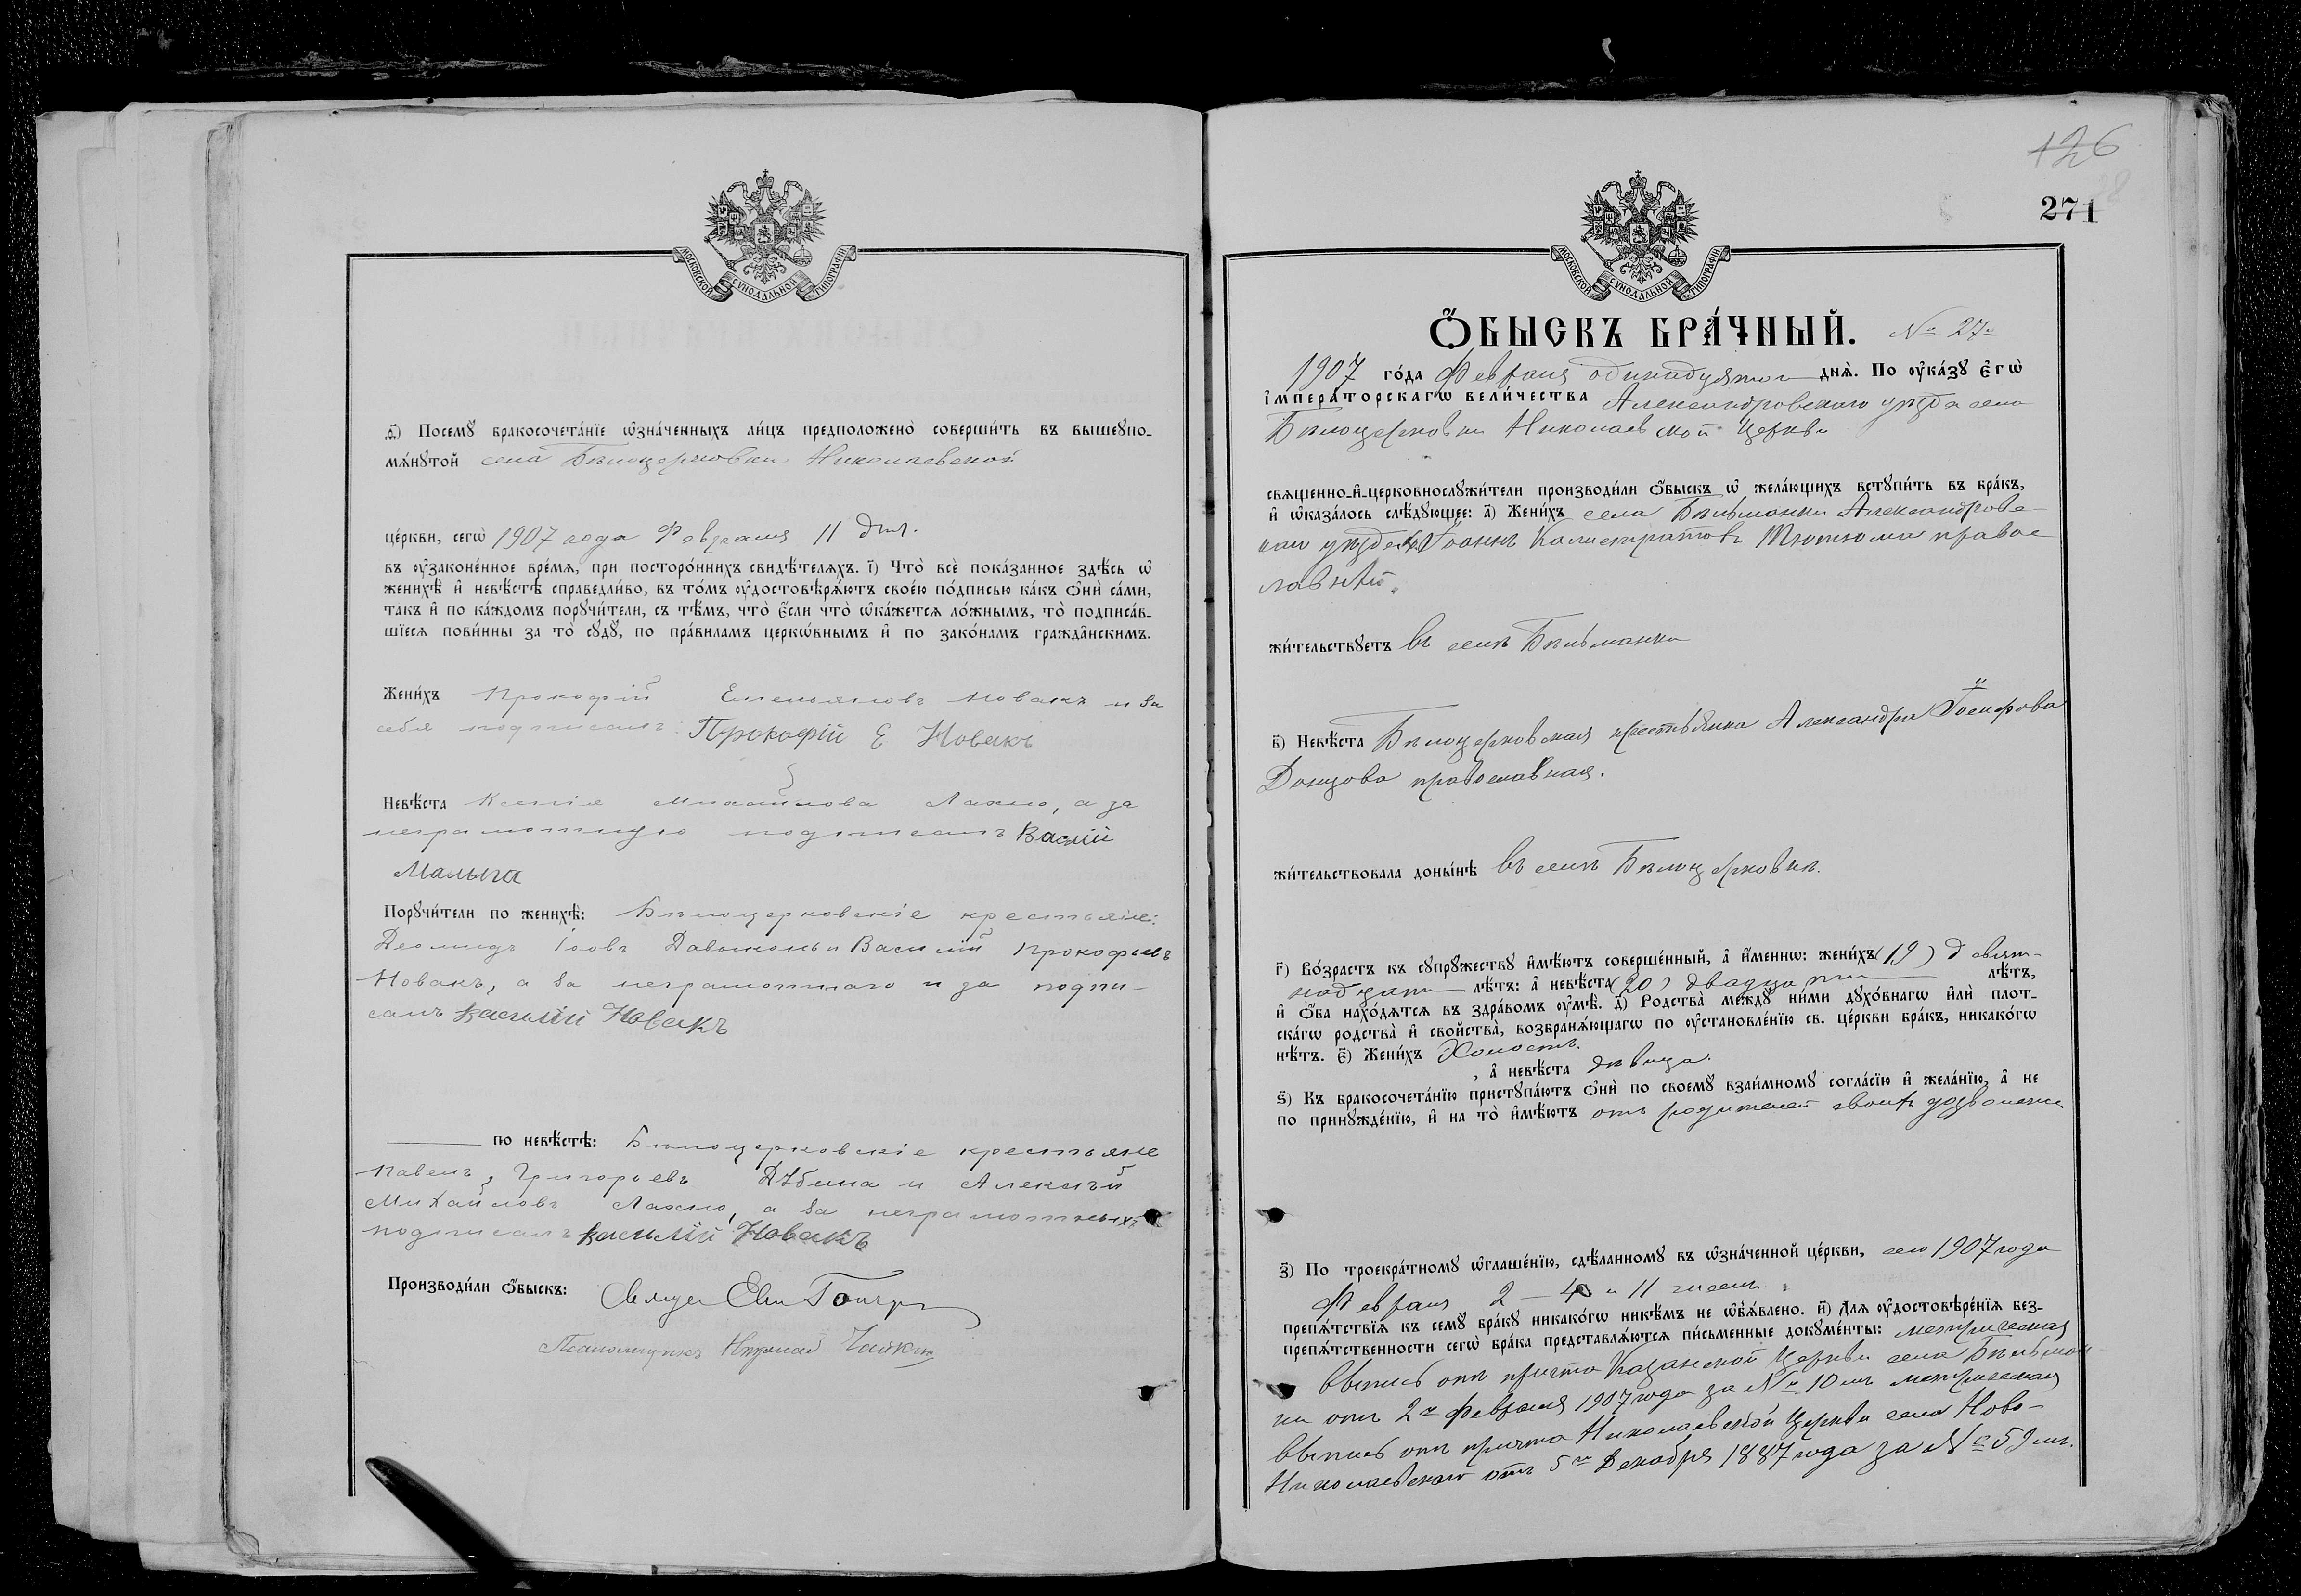 МОСКОВСКОЙ СУНОДАЛЬНОЙ ТИПОГРАФІИ
ѳ҃) Посемꙋ̀ бракосочета́нїе ѡ҆зна́ченныхъ ли́цъ предположено̀ соверши́ть въ вышеꙋпо-
мѧ́нꙋтой села Бѣлоцерковки Николаевской
це́ркви, сегѡ̀ 1907 года Февраля 11 дня.
въ ᲂу҆зако́ненное вре́мѧ, при посторо́ннихъ свидѣ́телѧхъ. і҃) Что̀ всѐ пока́занное здѣ́сь ѡ҆
женихѣ̀ и҆ невѣ́стѣ справедли́во, въ то́мъ ᲂу҆достовѣрѧ́ютъ свое́ю по́дписью ка́къ ѻ҆нѝ са́ми,
та́къ и҆ по ка́ждомъ порꙋчи́тели, съ тѣ́мъ, что̀ є҆́сли что̀ ѡ҆ка́жетсѧ ло́жнымъ, то̀ подписа́в-
шїесѧ пови́нны за то̀ сꙋдꙋ̀, по пра́вилам̾ церкѡ́внымъ и҆ по зако́намъ гражда̑нскимъ.
Жени́хъ Прокофій Емельяновъ Новакъ и за
себя подписалъ Прокофій Е Новакъ
Невѣ́ста Ксенія Михайлова Лахно, а за
неграмотную подписалъ Василій
Малыга
Порꙋчи́тели по женихѣ̀: Бѣлоцерковскіе крестьяне:
Деомидъ Іовъ и Василій Прокофьевъ
Новакъ, а за неграмотнаго и за подпи-
салъ Василій Новакъ
по невѣ́стѣ: Бѣлоцерковскіе крестьяне
Павелъ Григорьевъ Дѣбина и Алексѣй
Михайловъ Лахно, а за неграмотныхъ
подписалъ Василій Новакъ
Производи́ли ѻ҆́быскъ: Гончар
Псаломщикъ Николай
126
271
МОСКОВСКОЙ СУНОДАЛЬНОЙ ТИПОГРАФІИ
Ѻ҆́БЫСКЪ БРА́ЧНЫЙ. № 27
1907 го́да Февраля одинадцятого днѧ̀. По ᲂу҆ка́зꙋ Є҆гѡ̀
і҆мпера́торскагѡ вели́чества Александровскаго уѣзда села
Бѣлоцерковки Николаевской Церкви
свѧщенно-и҆-церковнослꙋжи́тели производи́ли ѻ҆́быскъ ѡ҆ жела́ющихъ встꙋпи́ть въ бра́къ,
и҆ ѡ҆каза́лось слѣ́дꙋющее: а҃) Жени́хъ села Бѣльманки Александровс-
каго уѣзда Іоаннъ Калистратовъ Тютюма правос
лавный.
жи́тельствꙋетъ въ селѣ Бѣльманки
в҃) Невѣ́ста Бѣлоцерковская крестьянка Александра Іосифова
Донцова православная.
жи́тельствовала доны́нѣ въ селѣ Бѣлоцерковкѣ.
г҃) Во́зрастъ къ сꙋпрꙋ́жествꙋ и҆мѣ́ютъ соверше́нный, а҆ и҆́меннѡ: жени́хъ (19) девят-
надцати лѣ́тъ: а҆ невѣ́ста (20) двадцати лѣ́тъ,
и҆ ѻ҆́ба нахо́дѧтсѧ въ здра́вомъ ᲂу҆мѣ̀. д҃) Родства̀ междꙋ̀ ни́ми дꙋхо́внагѡ и҆лѝ плот-
ска́гѡ родства̀ и҆ сво́йства̀, возбранѧ́ющагѡ по ᲂу҆становле́нїю св. це́ркви бра́къ, никако́гѡ
нѣ́тъ. є҃) Жени́хъ Холостъ.
, а҆ невѣ́ста дѣвица.
ѕ҃) Къ бракосочета́нїю пристꙋпа́ютъ ѻ҆нѝ по своемꙋ̀ взаи́мномꙋ согла́сїю и҆ жела́нїю, а҆ не
по принꙋжде́нїю, и҆ на то̀ и҆мѣ́ютъ отъ родителей своихъ дозволение
з҃) По троекра́тномꙋ ѡ҆глаше́нїю, сдѣ́ланномꙋ въ ѡ҆зна́ченной це́ркви, сего 1907 года
Февраля 2 – 4 и 11 числъ
препѧ́тствїѧ къ семꙋ̀ бра́кꙋ никако́гѡ никѣ́мъ не ѡ҆б̾ѧ́влено. и҃) Длѧ ᲂу҆достовѣре́нїѧ без-
препѧ́тственности сегѡ̀ бра́ка представлѧ́ютсѧ пи́сьменные докꙋме́нты: метрическая
выпись отъ причта Казанской Церкви села Бѣльман
ки отъ 2го Февраля 1907 года за № 10мъ метрическая
выпись отъ причта Николаевской Церкви села Ново-
Николаевскаго отъ 5го Декабря 1887 года за № 59мъ.